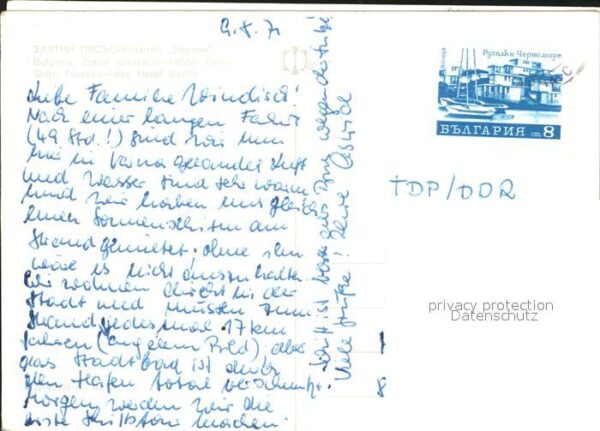 9.8.71
ЗЛАТНИ ПЯСЪЦИ - хотел „Берлин“
Bulgaria, Zlatni piassatzi - l'hôtel Berlin
Slatni Piassazi - das Hotel Berlin
Liebe Familie Windisch!
Nach einer langen Fahrt
(49 Std.!) sind wir nun
hier in Varna gelandet. Luft
und Wasser sind sehr warm
und wir haben uns gleich
einen Sonnenschirm am
Strand gemietet. Ohne ihn
wäre es nicht auszuhalten.
Wir wohnen direkt in der
Stadt und müssen zum
Strand jedesmal 17 km
fahren (auf dem Bild), aber
das Stadtbad ist durch
den Hafen total verschmutzt.
Morgen werden wir die
erste Schiffstour machen.
Schrift ist bitte
Viele Grüße! Ihre
ПОЩА
Русалка Черноморе
БЪЛГАРИЯ ст. 8
TDP/DDR
privacy protection
Datenschutz